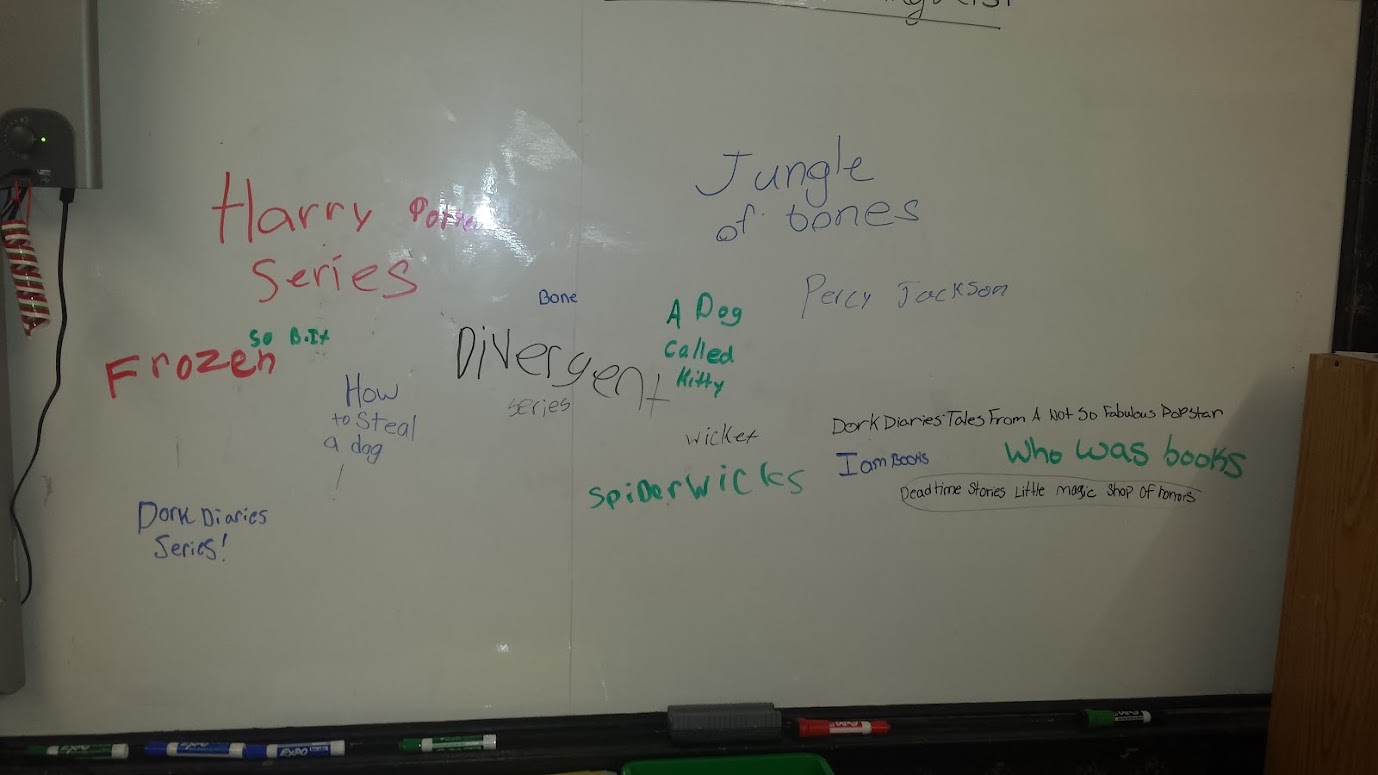 Harry Potter
Series
Jungle
of bones
Bone
Percy Jackson
A Dog
called
Kitty
So B.It
Frozen
Divergent
series
How
to Steal
a dog
!
wicket
Spiderwicks
Dork Diaries: Tales From A Not So Fabulous Popstar
I am Books
Who was books
Deadtime Stories Little magic Shop Of horrors
Dork Diaries
Series!
EXPO
EXPO